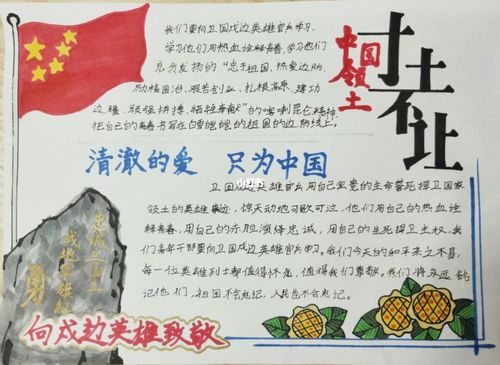 我们要向卫国戍边英雄官兵学习，
学习他们用热血诠释青春，学习他们
充分发扬的“忠于祖国、热爱边防、
励精图治、艰苦创业、扎根高原、建功
边疆、顽强拼搏、牺牲奉献”的喀喇昆仑精神，
把自己的青春书写在白雪皑皑的祖国的边防线上。
中国领土
寸土不让
清澈的爱 只为中国
卫国戍边英雄官兵用自己宝贵的生命誓死捍卫国家
领土的英雄事迹，惊天动地可歌可泣，他们用自己的热血诠
释青春，用自己的赤胆演绎忠诚，用自己的生死捍卫主权，我
们青年干部要向卫国戍边英雄官兵学习。我们今天的和平来之不易，
每一位英雄烈士都值得怀念，值得我们尊敬。我们将永远铭
记他们，祖国不会忘记，人民也不会忘记。
勇
向戍边英雄致敬